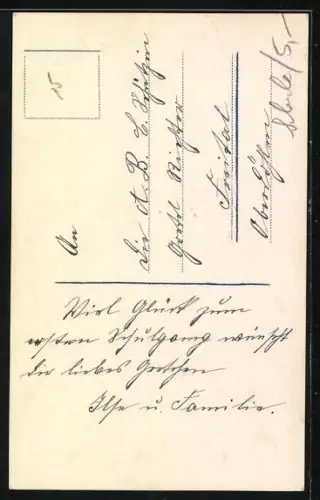 15
Schule/5,-
An
Die A. B. C. Schützin
Gretel Richter
Freital
Viel Glück zum
ersten Schulgang wünscht
dir liebes Gretchen
Ilse u. Familie.